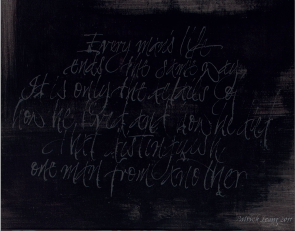 Every man's life
ends the same way
It is only the details of
how he lived and how he died
that distinguish
one man from another